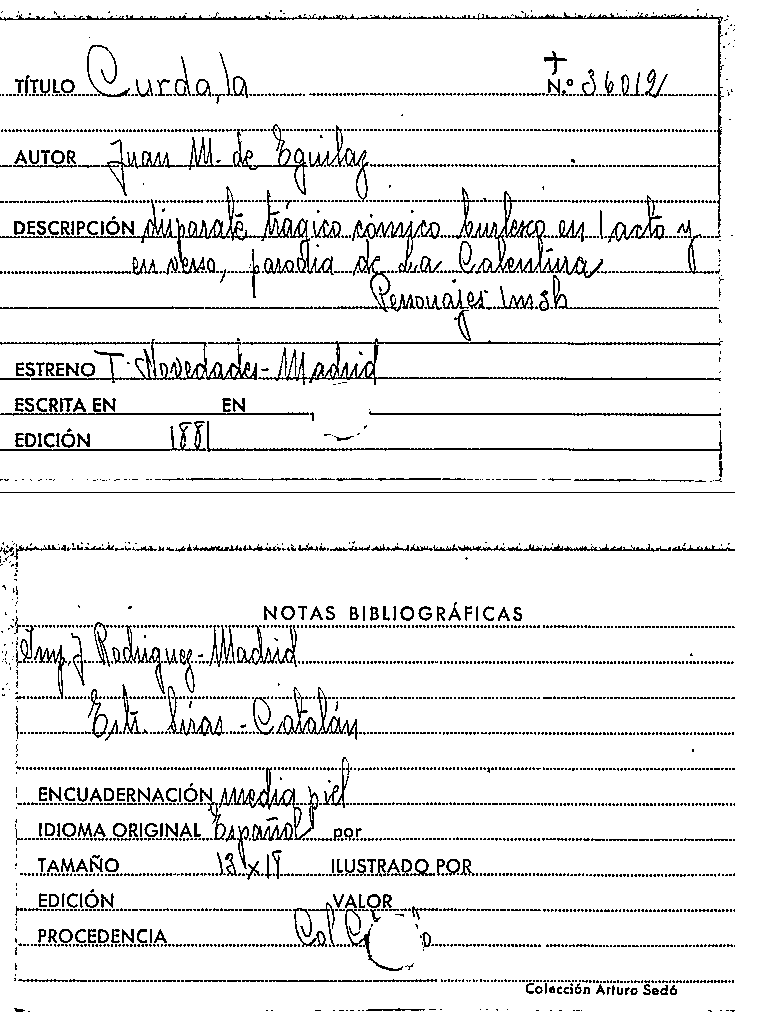 TÍTULO Curda, la N.º 36012
AUTOR Juan M. de Eguilaz
DESCRIPCIÓN disparate trágico cómico burlesco en 1 acto y
en verso, parodia de La Calentura
Personajes 1m3h
ESTRENO T. Novedades - Madrid
ESCRITA EN EN
EDICIÓN 1881
NOTAS BIBLIOGRÁFICAS
Imp. J Rodriguez - Madrid
Estr. - Catalán
ENCUADERNACIÓN media piel
IDIOMA ORIGINAL Español por
TAMAÑO ILUSTRADO POR
EDICIÓN VALOR
PROCEDENCIA Col
Colección Arturo Sedó